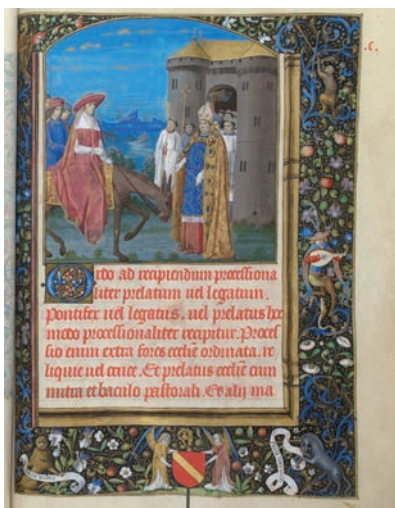 .C.
Ordo ad recipiendum processiona
liter prelatum uel legatum.
Pontifex uel legatus, uel prelatus hoc
modo processionaliter recipitur. Proces
sio enim extra fores ecclie ordinata, re
liquie uel cruce. Et prelatus ecclie cum
mitra et baculo pastorali. Et alij ma